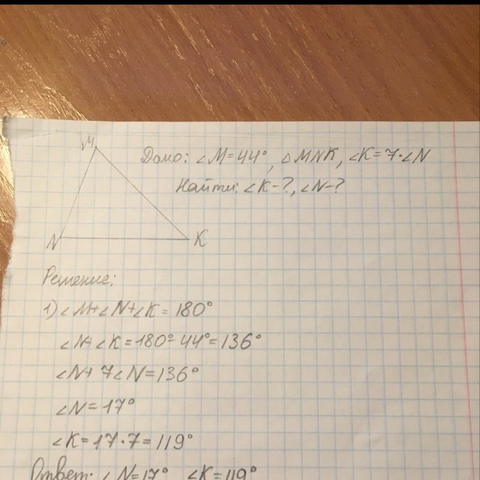 M
Дано: ∠M=44°, △MNK, ∠K=7·∠N
Найти: ∠K-?, ∠N-?
N K
Решение:
1) ∠M+∠N+∠K=180°
∠N+∠K=180°-44°=136°
∠N+7∠N=136°
∠N=17°
∠K=17·7=119°
Ответ: ∠N=17° ∠K=119°